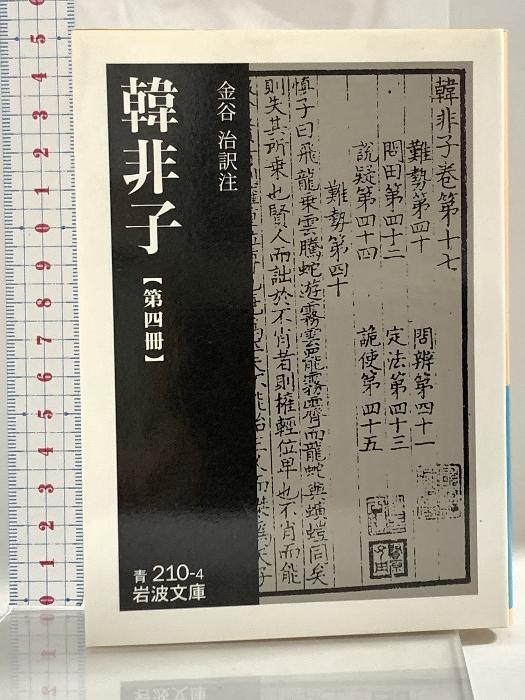 韓非子
【第四冊】
金谷 治訳注
韓非子卷第十七
難勢第四十
問辨第四十一
問田第四十二
定法第四十三
說疑第四十四
詭使第四十五
難勢第四十
慎子曰飛龍乗雲騰蛇遊霧雲罷霧霽而龍蛇與螾螘同矣
則失其所乗也賢人而詘於不肖者則權輕位卑也不肖而能
青 210-4
岩波文庫
0 1 2 3 4 5 6 7 8 9 0 1 2 3 4 5